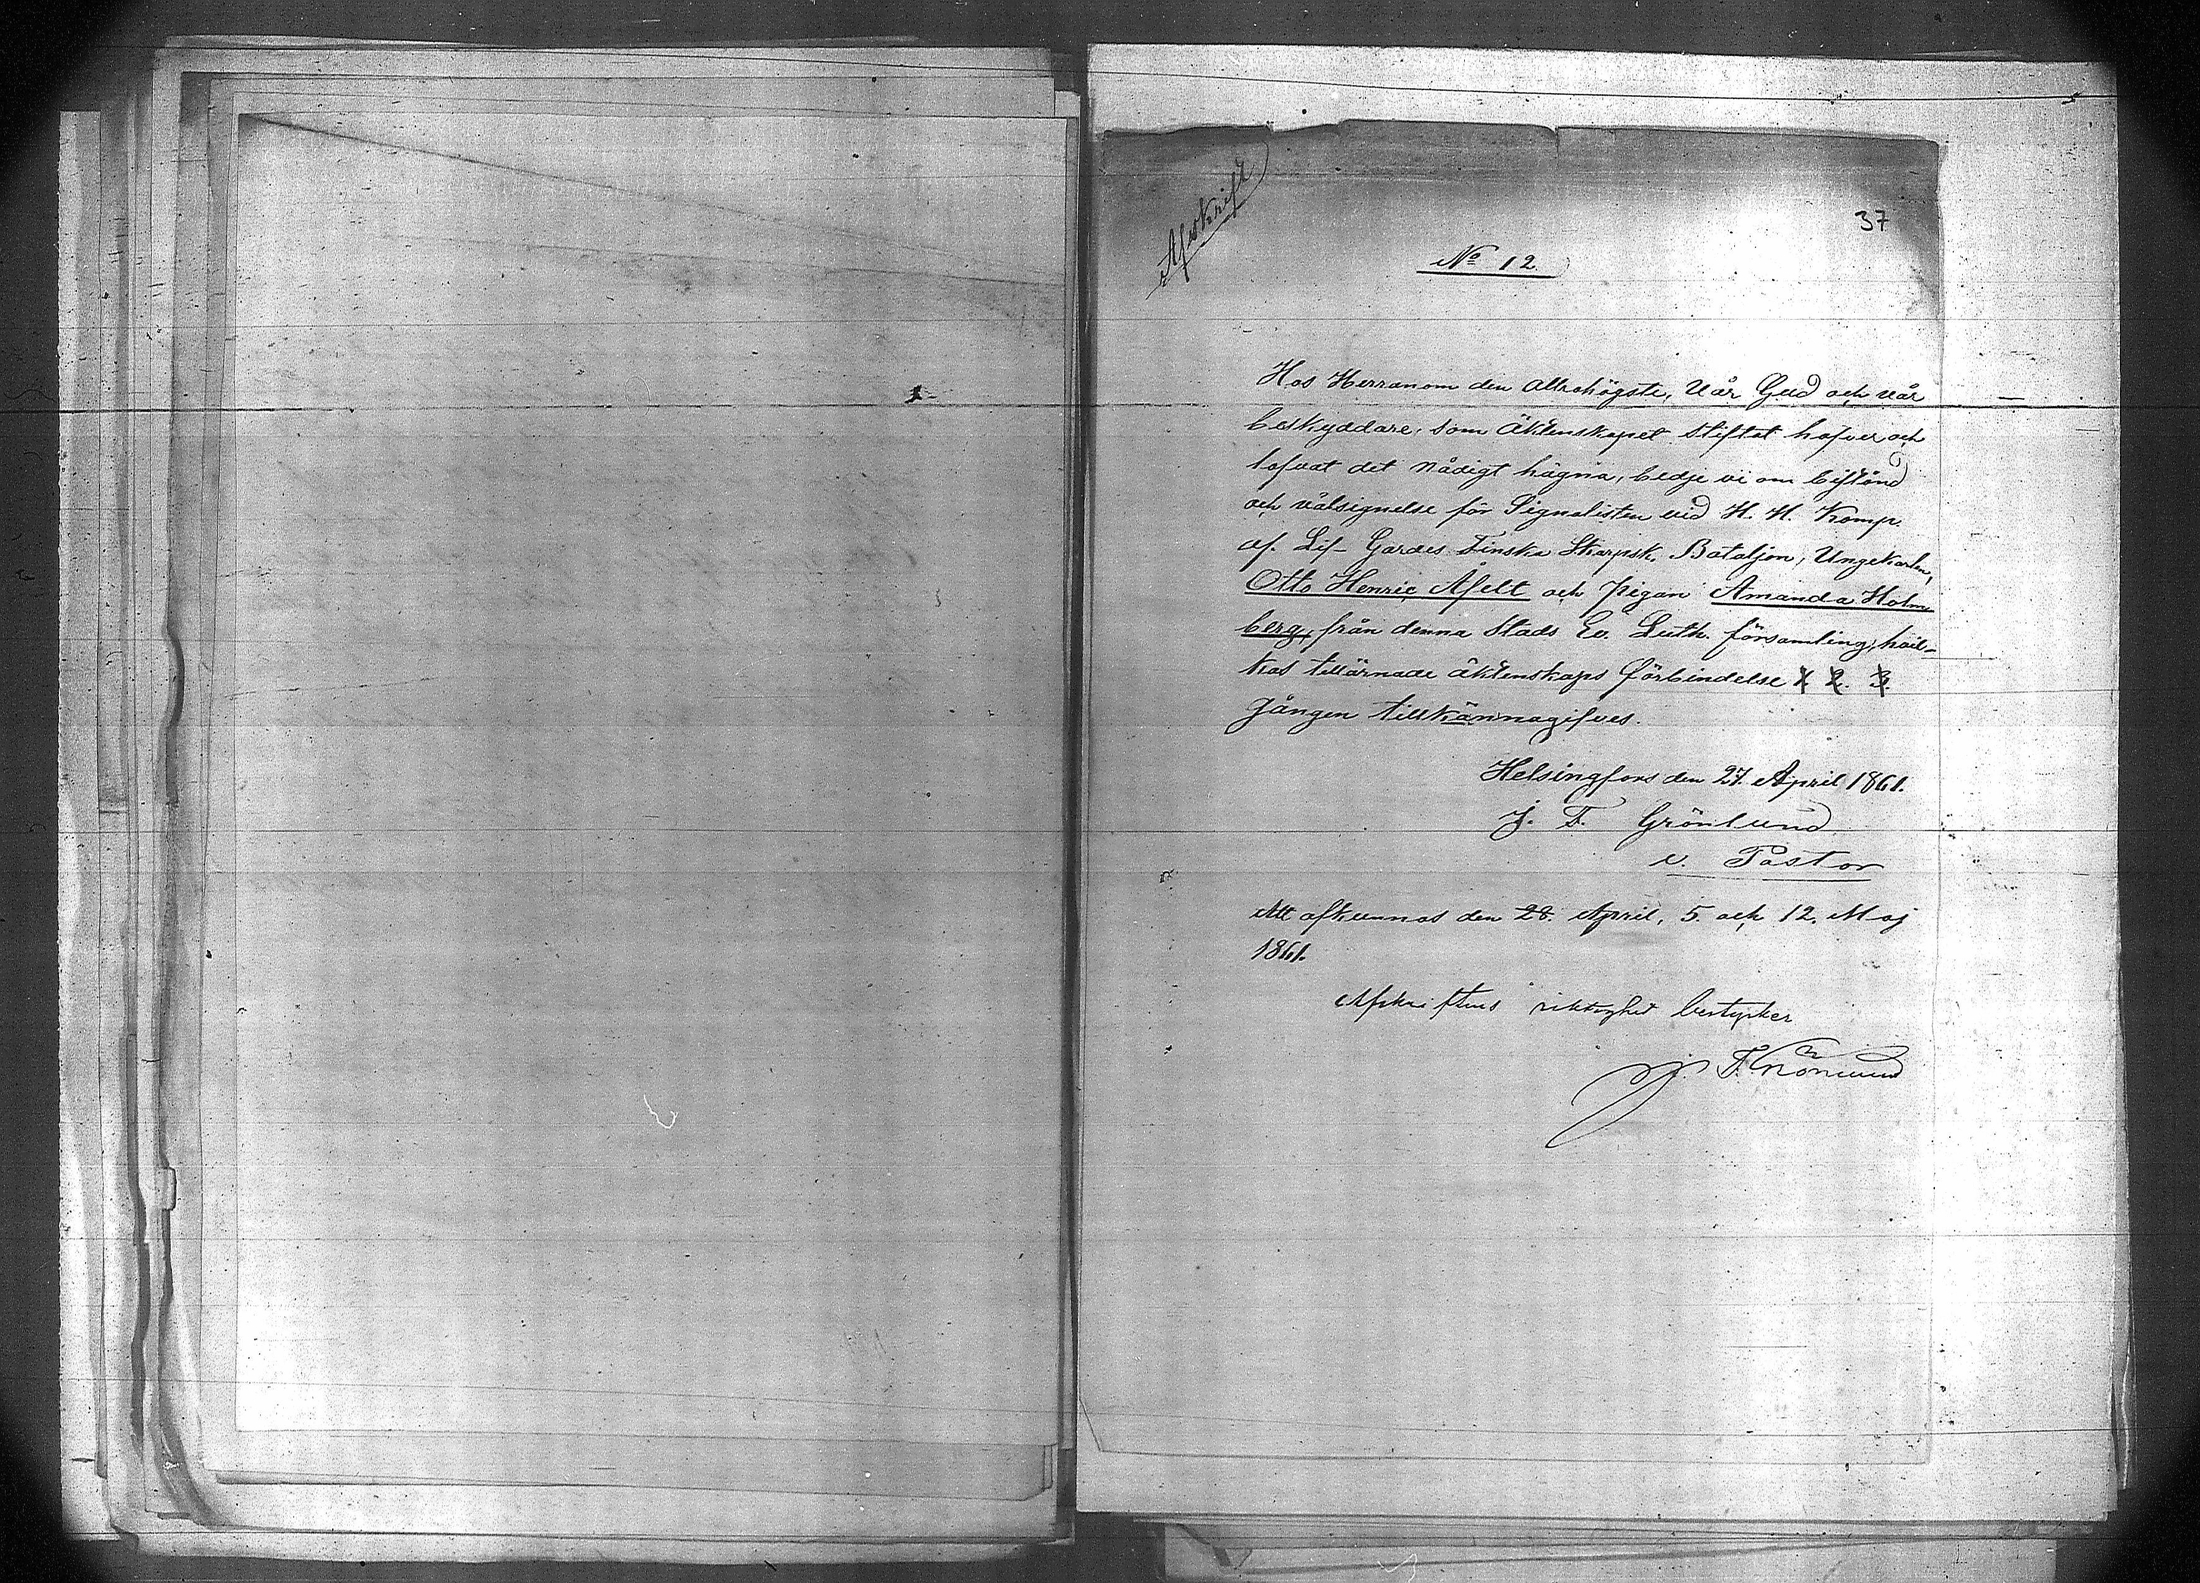 Afskrift
37
No 12.
Hos Herranom den Allrahögste, Vår Gud och vår
beskyddare, som Äktenskapet stiftat hafver och
lofvat det nådigt hägna, bedje vi om bistånd
och välsignelse för Signalisten vid H. H. Komp.
af. Lif- Gardes Finska Skarpsk. Bataljon, Ungekarlen,
Otto Henric Åfelt och pigan Amanda Holm
berg, från denna Stads Ev. Luth. församling, hvil-
kas tillärnade äktenskaps förbindelse 1. 2. 3.
gången tillkännagifves.
Helsingfors den 27. April 1861.
J. F. Grönlund
v. Pastor
Att afkunnas den 28. April, 5. och 12. Maj
1861.
Afskriftens riktighet bestyrker
J. F. Grönlund